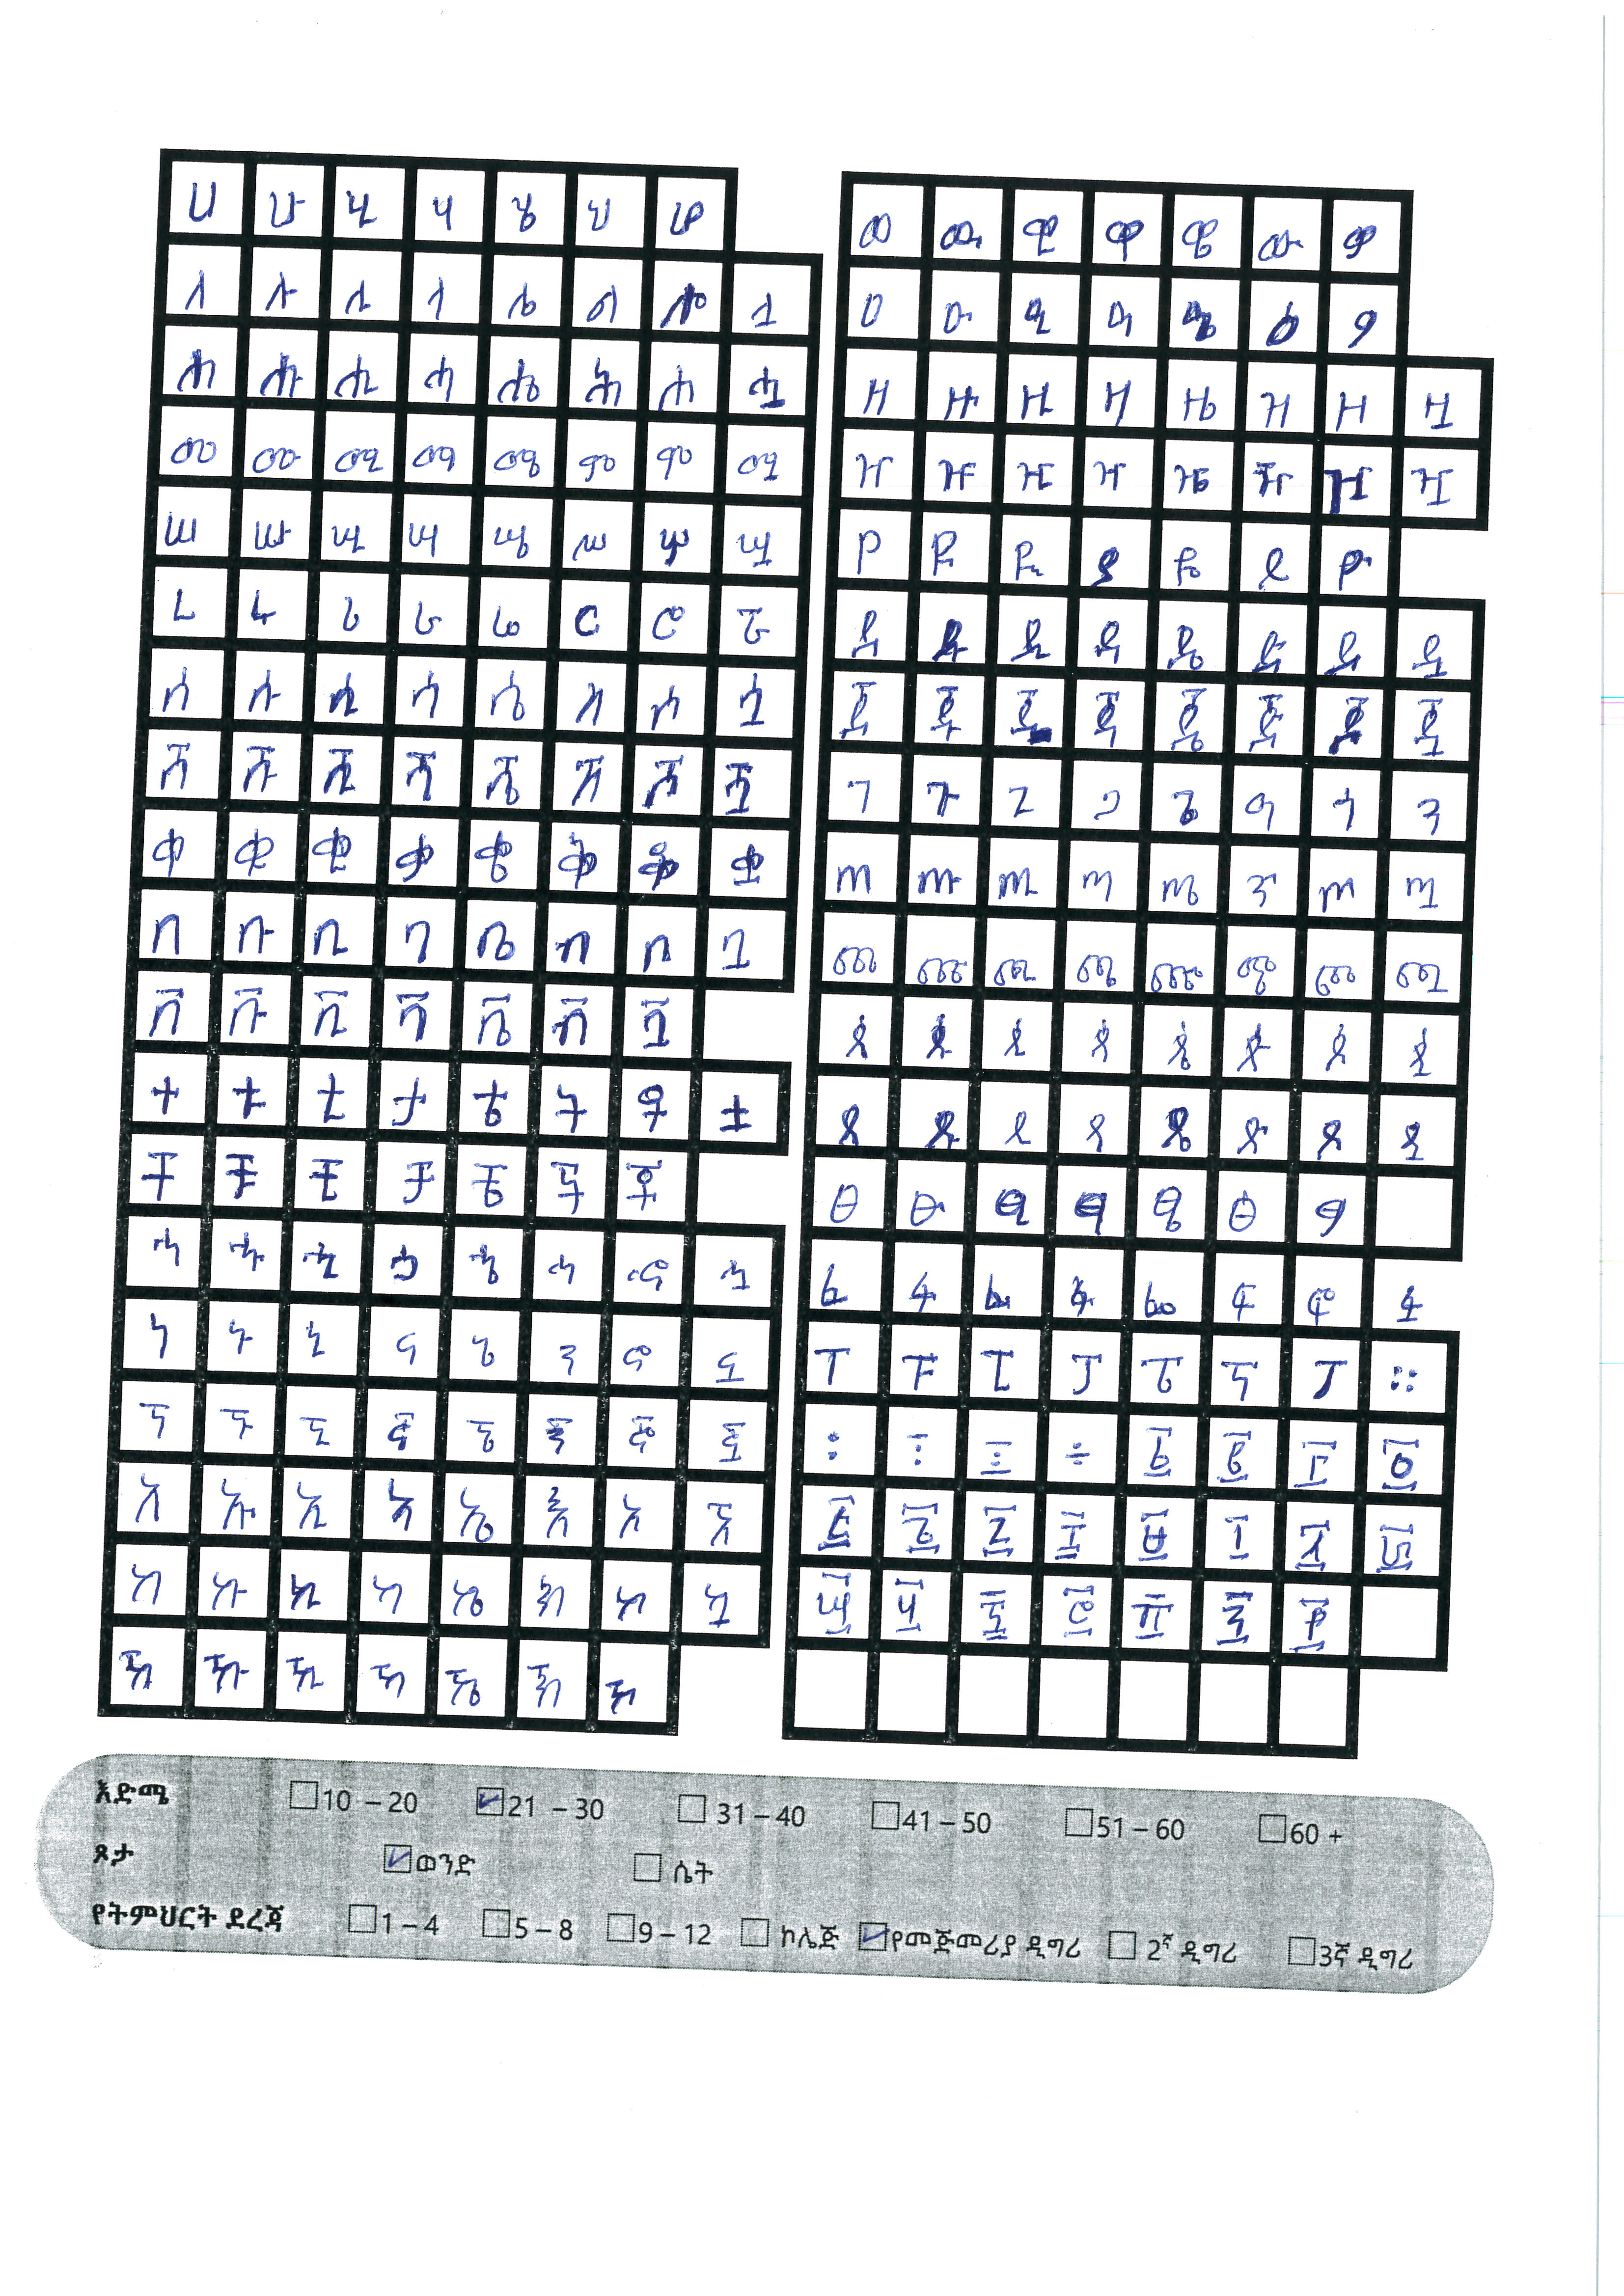 ሀ ሁ ሂ ሃ ሄ ህ ሆ
ለ ሉ ሊ ላ ሌ ል ሎ ሏ
ሐ ሑ ሒ ሓ ሔ ሕ ሖ ሗ
መ ሙ ሚ ማ ሜ ም ሞ ሟ
ሠ ሡ ሢ ሣ ሤ ሥ ሦ ሧ
ረ ሩ ሪ ራ ሬ ር ሮ ሯ
ሰ ሱ ሲ ሳ ሴ ስ ሶ ሷ
ሸ ሹ ሺ ሻ ሼ ሽ ሾ ሿ
ቀ ቁ ቂ ቃ ቄ ቅ ቆ ቋ
በ ቡ ቢ ባ ቤ ብ ቦ ቧ
ቨ ቩ ቪ ቫ ቬ ቭ ቯ
ተ ቱ ቲ ታ ቴ ት ቶ ቷ
ቸ ቹ ቺ ቻ ቼ ች ቾ
ኀ ኁ ኂ ኃ ኄ ኅ ኆ ኋ
ነ ኑ ኒ ና ኔ ን ኖ ኗ
ኘ ኙ ኚ ኛ ኜ ኝ ኞ ኟ
አ ኡ ኢ ኣ ኤ እ ኦ ኧ
ከ ኩ ኪ ካ ኬ ክ ኮ ኳ
ኸ ኹ ኺ ኻ ኼ ኽ ኾ
ወ ዉ ዊ ዋ ዌ ው ዎ
ዐ ዑ ዒ ዓ ዔ ዕ ዖ
ዘ ዙ ዚ ዛ ዜ ዝ ዞ ዟ
ዠ ዡ ዢ ዣ ዤ ዥ ዦ ዧ
የ ዩ ዪ ያ ዬ ይ ዮ
ደ ዱ ዲ ዳ ዴ ድ ዶ ዷ
ጀ ጁ ጂ ጃ ጄ ጅ ጆ ጇ
ገ ጉ ጊ ጋ ጌ ግ ጎ ጓ
ጠ ጡ ጢ ጣ ጤ ጥ ጦ ጧ
ጨ ጩ ጪ ጫ ጬ ጭ ጮ ጯ
ጰ ጱ ጲ ጳ ጴ ጵ ጶ ጷ
ጸ ጹ ጺ ጻ ጼ ጽ ጾ ጿ
ፀ ፁ ፂ ፃ ፄ ፅ ፆ
ፈ ፉ ፊ ፋ ፌ ፍ ፎ ፏ
ፐ ፑ ፒ ፓ ፔ ፕ ፖ ።
፩ ፪ ፫ ፬
፭ ፮ ፯ ፰ ፱ ፲ ፳ ፴
፵ ፶ ፷ ፸ ፹ ፺ ፻
እድሜ 10 – 20 21 – 30 31 – 40 41 – 50 51 – 60 60 +
ጾታ ወንድ ሴት
የትምህርት ደረጃ 1 – 4 5 – 8 9 – 12 ኮሌጅ የመጅመሪያ ዲግሪ 2ኛ ዲግሪ 3ኛ ዲግሪ